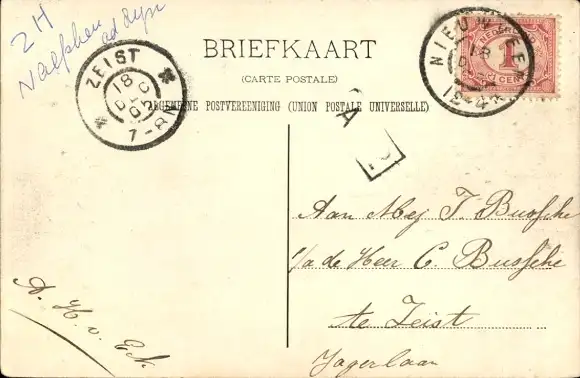 ZH
Nalphen
ad Rijn
BRIEFKAART
(CARTE POSTALE)
ALGEMEENE POSTVEREENIGING (UNION POSTALE UNIVERSELLE)
ZEIST
18
DEC
7-8N
NIEUW
18
12-4
NEDERL
1
CENT
A
Aan Mej T. Bussche
p/a de Heer C. Bussche
te Zeist
Jagerlaan
A. H. v. Eck